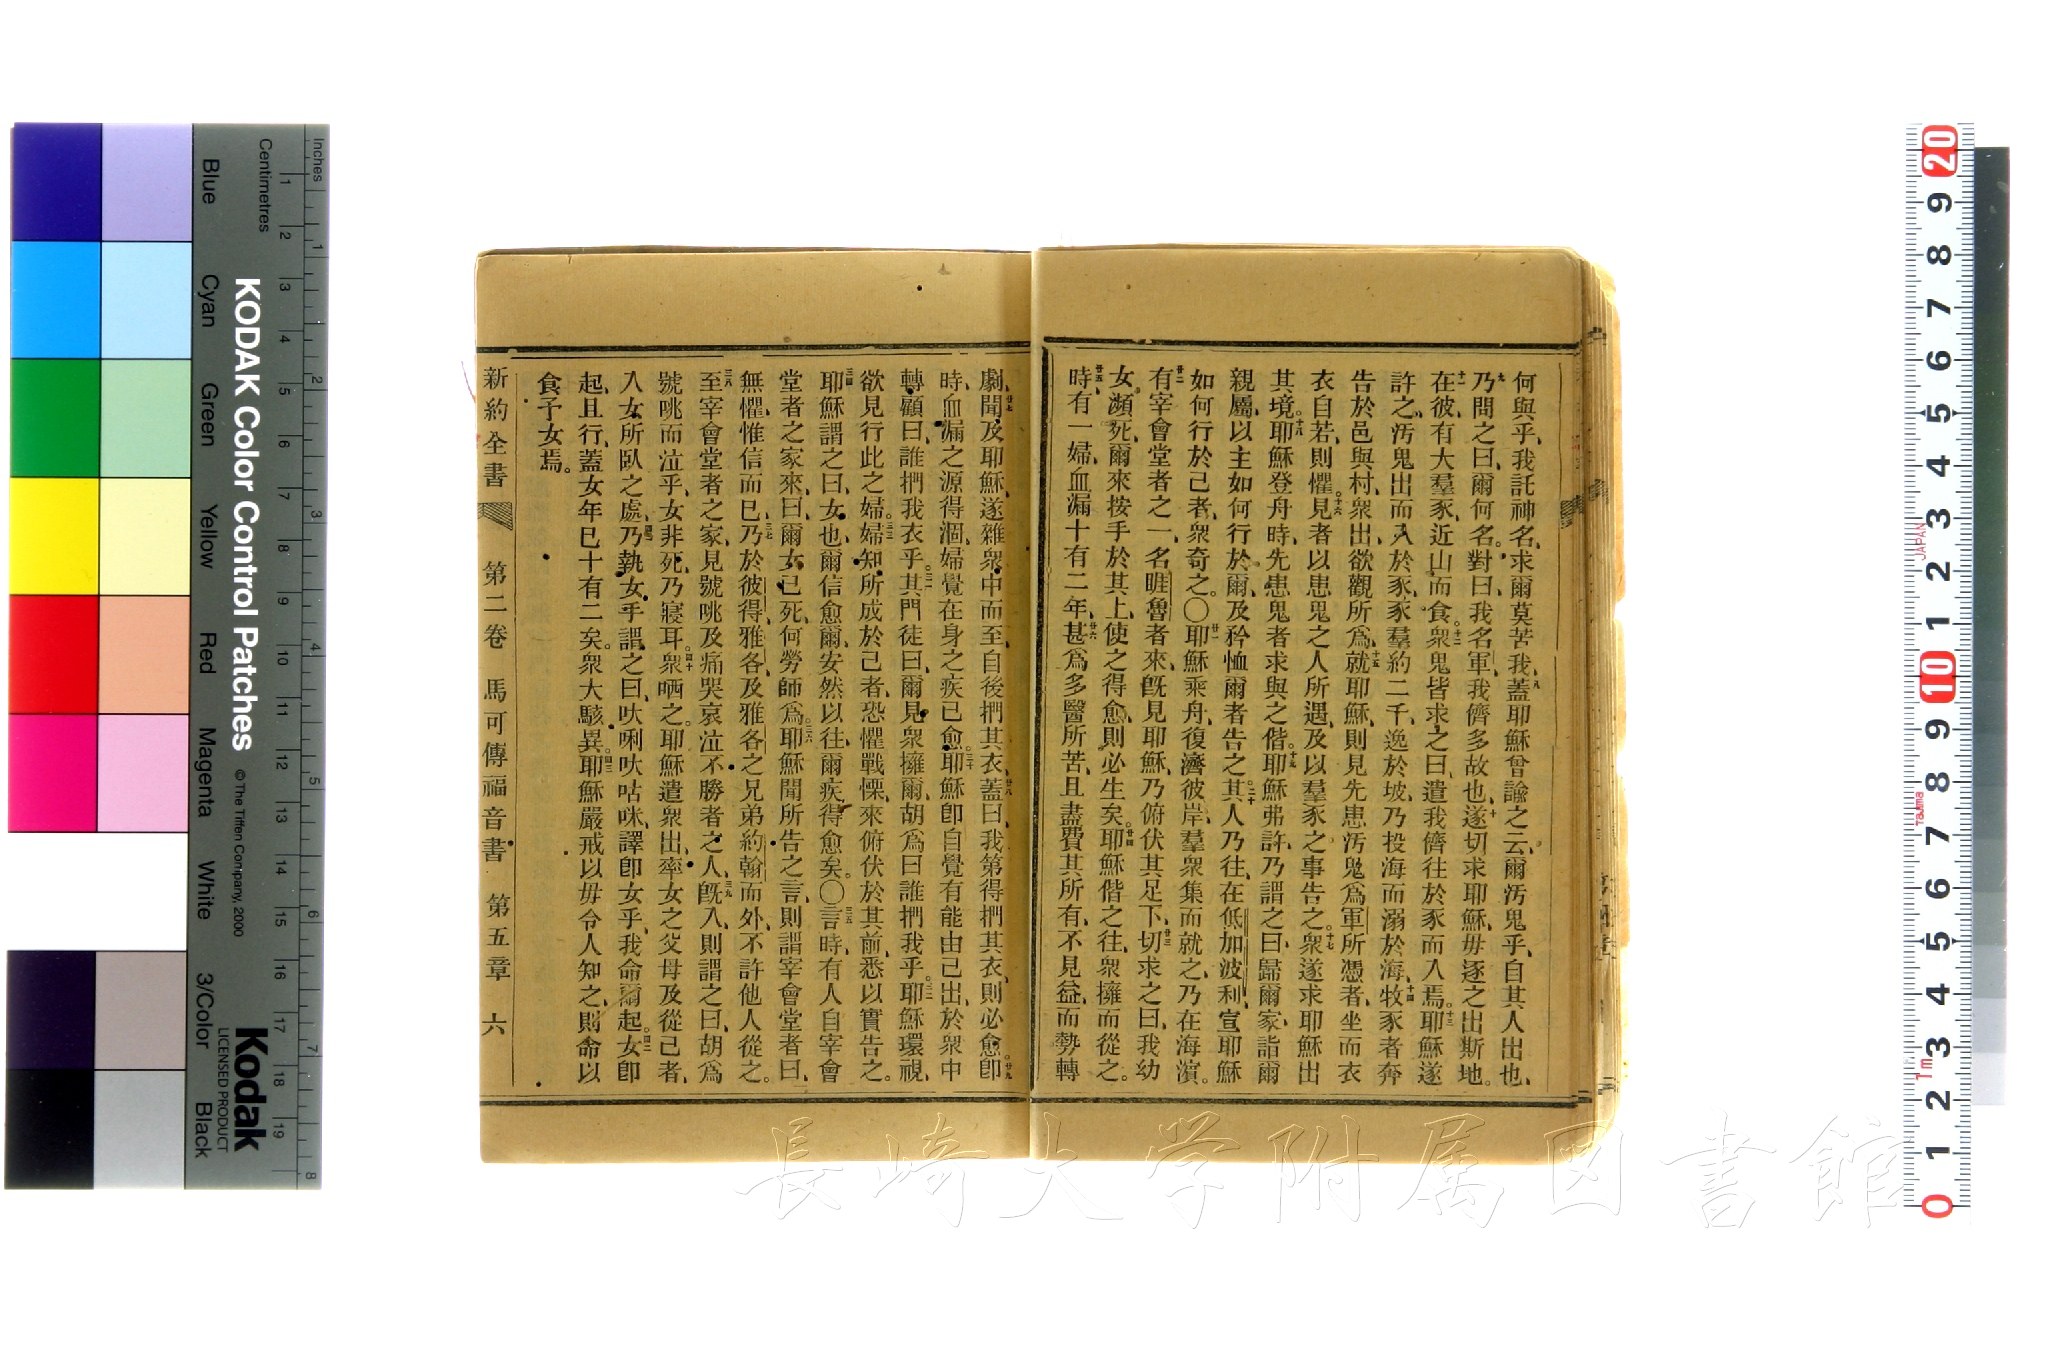 何與乎、我託神名、求爾莫苦我、八蓋耶穌曾諭之云、爾汚鬼乎、自其人出也、
九乃問之曰、爾何名、對曰、我名軍、我儕多故也、十遂切求耶穌、毋逐之出斯地。
十一在彼、有大羣豕、近山而食。十二衆鬼皆求之曰、遣我儕往於豕而入焉。十三耶穌遂
許之、汚鬼出而入於豕、豕羣約二千、逸於坡、乃投海而溺於海、十四牧豕者奔
告於邑與村、衆出、欲觀所爲、十五就耶穌、則見先患汚鬼爲軍所憑者、坐而衣
衣自若、則懼。十六見者以患鬼之人所遇、及以羣豕之事告之。十七衆遂求耶穌出
其境。十八耶穌登舟時、先患鬼者求與之偕。十九耶穌弗許、乃謂之曰、歸爾家、詣爾
親屬、以主如何行於爾、及矜恤爾者告之。二十其人乃往、在低加波利、宣耶穌
如何行於己者、衆奇之。〇廿一耶穌乘舟、復濟彼岸、羣衆集而就之、乃在海濱。
廿二有宰會堂者之一、名睚魯者來、旣見耶穌、乃俯伏其足下、廿三切求之曰、我幼
女、瀕死、爾來按手於其上、使之得愈、則必生矣。廿四耶穌偕之往、衆擁而從之。
廿五時有一婦、血漏十有二年、廿六甚爲多醫所苦、且盡費其所有、不見益、而勢轉
劇、廿七聞及耶穌、遂雜衆中而至、自後捫其衣、廿八蓋曰、我第得捫其衣、則必愈。廿九卽
時、血漏之源得涸、婦覺在身之疾已愈、三十耶穌卽自覺有能由己出、於衆中
轉顧曰、誰捫我衣乎。三一其門徒曰、爾見衆擁爾、胡爲曰誰捫我乎。三二耶穌環視、
欲見行此之婦。三三婦知所成於己者、恐懼戰慄、來俯伏於其前、悉以實告之。
三四耶穌謂之曰、女也、爾信愈爾、安然以往、爾疾得愈矣。〇三五言時、有人自宰會
堂者之家來曰、爾女已死、何勞師爲。三六耶穌聞所告之言、則謂宰會堂者曰、
無懼、惟信而已。三七乃於彼得、雅各、及雅各之兄弟約翰而外、不許他人從之。
三八至宰會堂者之家、見號咷及痛哭哀泣不勝者之人、三九旣入、則謂之曰、胡爲
號咷而泣乎、女非死、乃寢耳。四十衆哂之。耶穌遣衆出、率女之父母及從己者、
入女所臥之處、四一乃執女手謂之曰、呔唎呔咕咪、譯卽女乎、我命爾起。四二女卽
起、且行、蓋女年已十有二矣。衆大駭異。四三耶穌嚴戒以毋令人知之、則命以
食予女焉。
新約全書 第二卷 馬可傳福音書 第五章 六
KODAK Color Control Patches © The Tiffen Company, 2000
Kodak
LICENSED PRODUCT
Inches 1 2 3 4 5 6 7 8
Centimetres 1 2 3 4 5 6 7 8 9 10 11 12 13 14 15 16 17 18 19
Blue Cyan Green Yellow Red Magenta White 3/Color Black
20 9 8 7 6 5 4 3 2 1 10 9 8 7 6 5 4 3 2 1 0
JAPAN
Tajima
1m
長崎大学附属図書館